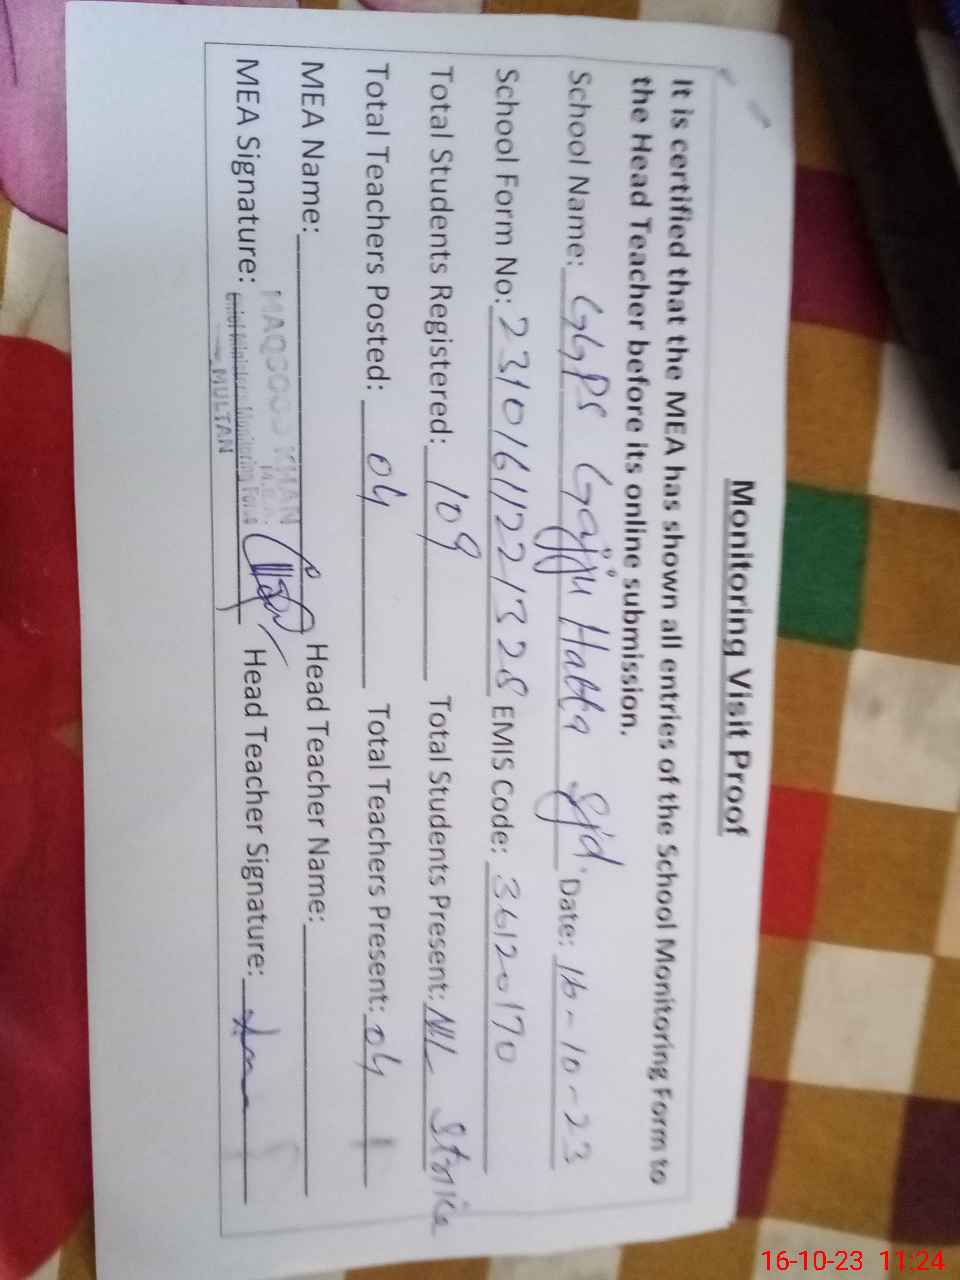 Monitoring Visit Proof
It is certified that the MEA has shown all entries of the School Monitoring Form to
the Head Teacher before its online submission.
School Name: GGPS Gajju Hatta Sjd. Date: 16-10-23
School Form No: 23101611221328 EMIS Code: 36120170
Total Students Registered: 109 Total Students Present: NIL Strike
Total Teachers Posted: 04 Total Teachers Present: 04
MEA Name: Head Teacher Name:
MAQSOOD KHAN
M.E.A.
MEA Signature: Chief Ministers Monitoring Force Head Teacher Signature:
MULTAN
16-10-23 11:24